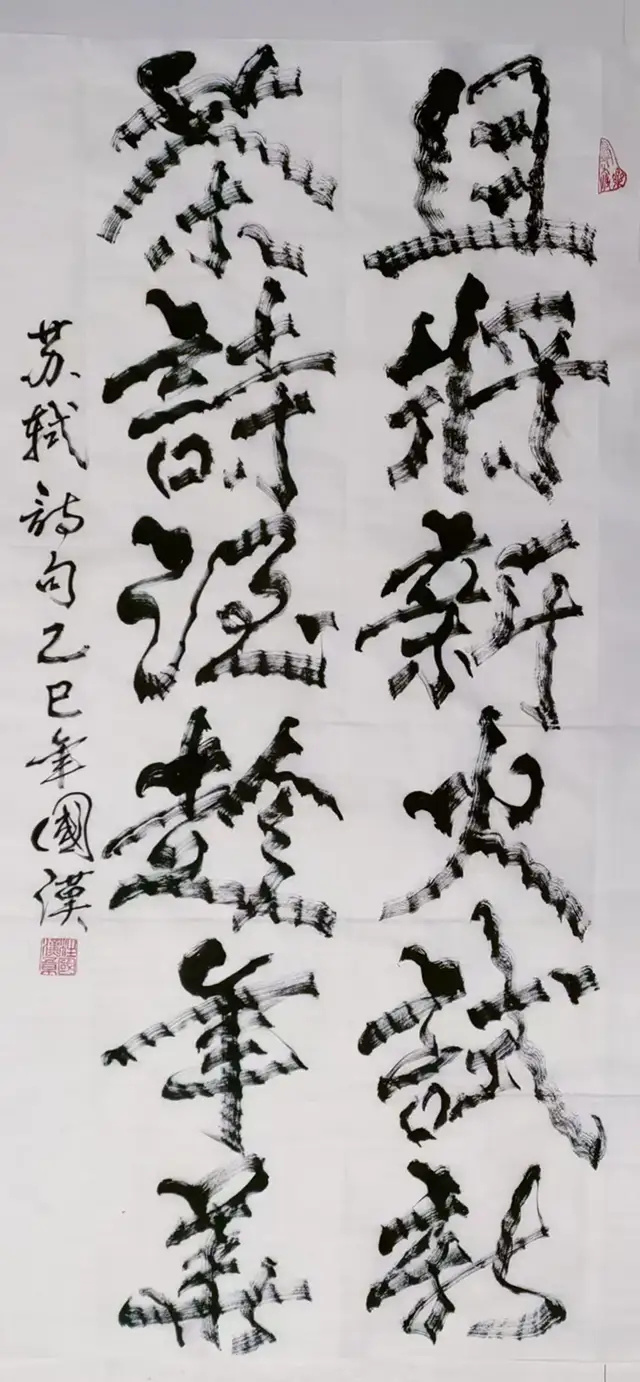 且將新火試新
茶詩酒趁年華
苏轼詩句乙巳年國漢